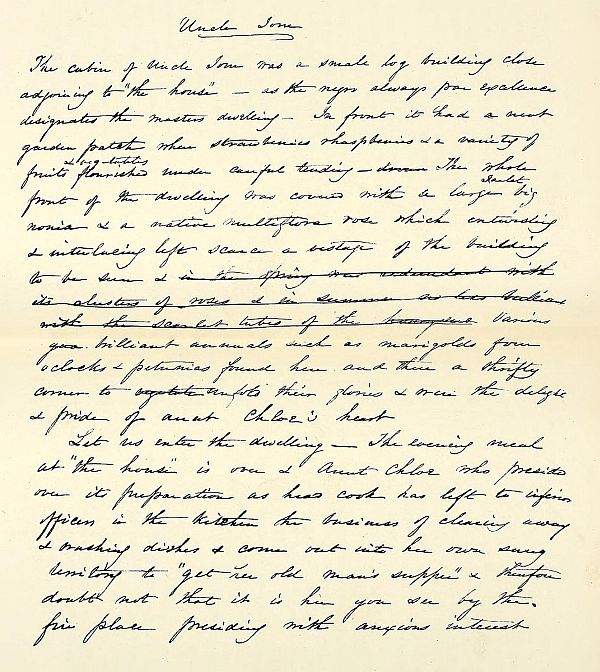 Uncle Tom
The cabin of Uncle Tom was a small log building close
adjoining to "the house" — as the negro always par excellence
designates the masters dwelling — In front it had a neat
garden patch where strawberries rhaspberries & a variety of
& vegetables
fruits flourished under careful tending — down The whole
scarlet
front of the dwelling was covered with a large big
nonia & a native multiflora rose which entwisting
& interlacing left scarce a vestage of the building
to be seen & in the spring was redundant with
its clusters of roses & in summer no less brilliant
with the scarlet tubes of the honeysuc Various
gua brilliant annuals such as marigolds four
oclocks & petunias found here and there a thrifty
corner to vegetate unfold their glories & were the delight
& pride of aunt Chloe's heart
Let us enter the dwelling — The evening meal
at "the house" is over & Aunt Chloe who presided
over its preparation as head cook has left to inferior
officers in the kitchen the business of clearing away
& washing dishes & come out into her own snug
territory to "get her old man's supper" & therefore
doubt not that it is her you see by the
fire place presiding with anxious interest